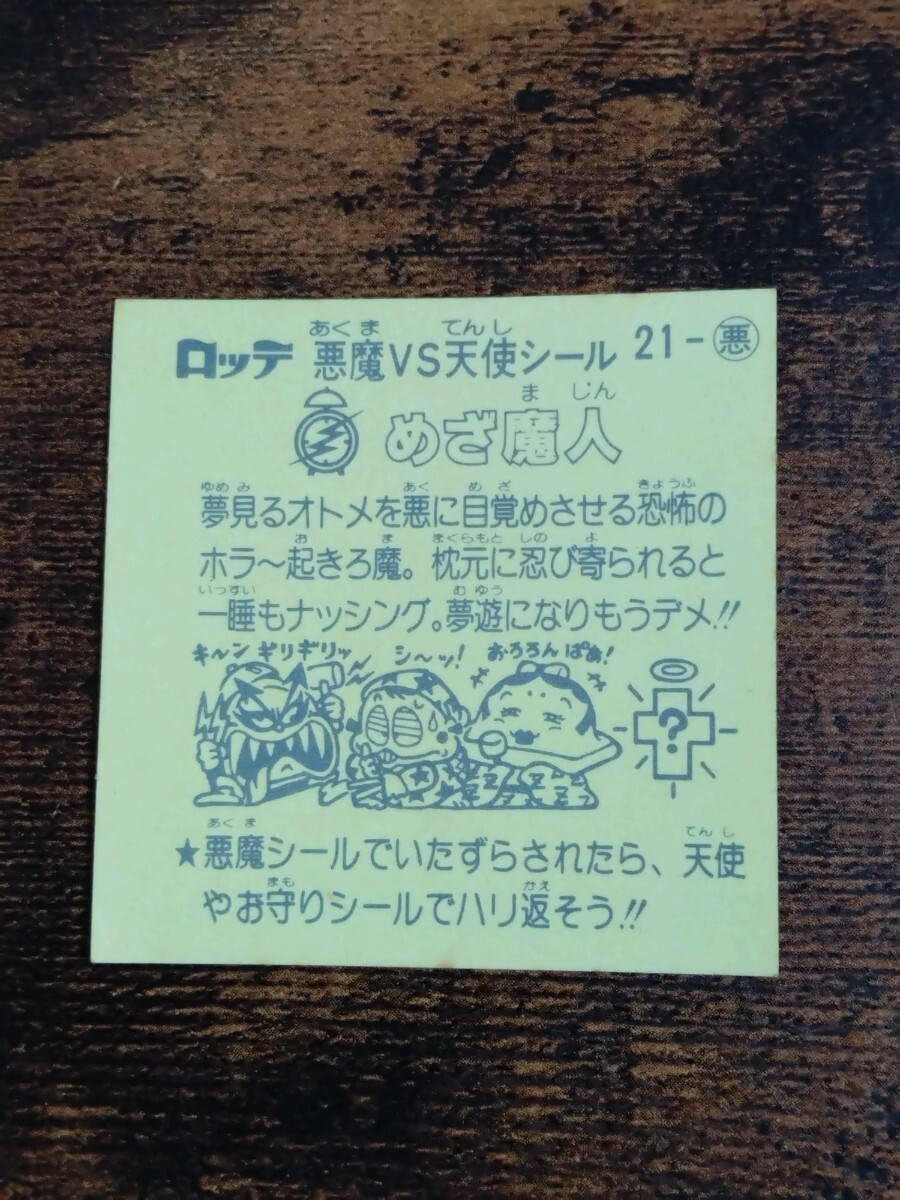 ロッテ 悪魔VS天使シール 21-悪
めざ魔人
夢見るオトメを悪に目覚めさせる恐怖の
ホラ〜起きろ魔。枕元に忍び寄られると
一睡もナッシング。夢遊になりもうデメ!!
キ〜ンギリギリッ シ〜ッ! おろろんばぁ!
?
★悪魔シールでいたずらされたら、天使
やお守りシールでハリ返そう!!